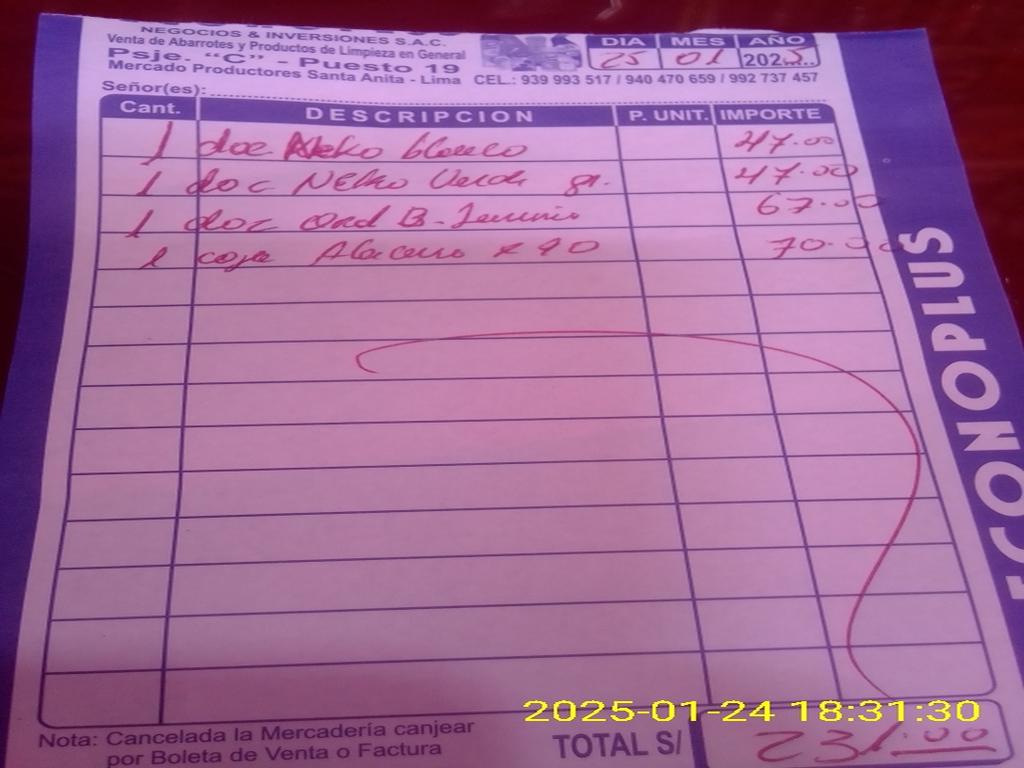 NEGOCIOS & INVERSIONES S.A.C.
Venta de Abarrotes y Productos de Limpieza en General
Psje. "C" - Puesto 19
Mercado Productores Santa Anita - Lima
CEL.: 939 993 517 / 940 470 659 / 992 737 457
DIA MES AÑO
25 01 2025
Señor(es):
Cant. DESCRIPCION P. UNIT. IMPORTE
1 doc Neko blanco 47.00
1 doc Neko Verde gr. 47.00
1 doc B. 67.00
1 caja 70.00
ECONOPLUS
Nota: Cancelada la Mercadería canjear
por Boleta de Venta o Factura
TOTAL S/ 231.00
2025-01-24 18:31:30